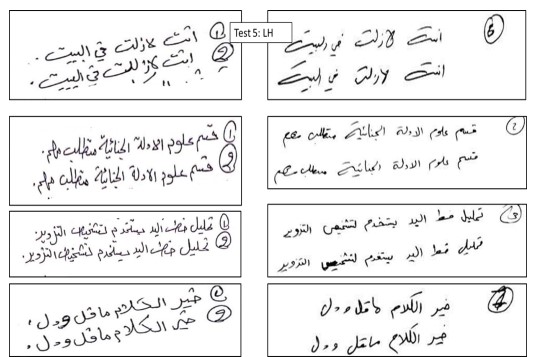 Test 5: LH
① انت لازلت في البيت .
② انت لازللت في البيت .
⑤ انت لازلت في البيت
انت لازلت في البيت
① قسم علوم الادلة الجنائية متطلب مهم .
② قسم علوم الادلة الجنائية متطلب مهم .
② قسم علوم الادلة الجنائية متطلب مهم
قسم علوم الادلة الجنائية متطلب مهم
① تحليل خط اليد يستخدم لتشخيص التزوير .
② تحليل خط اليد يستخدم لتشخيص التزوير .
③ تحليل خط اليد يستخدم لتشخيص التزوير
تحليل خط اليد يستخدم لتشخيص التزوير
① خير الكلام ماقل ودل .
② خير الكلام ماقل ودل .
④ خير الكلام ماقل ودل
خير الكلام ماقل ودل